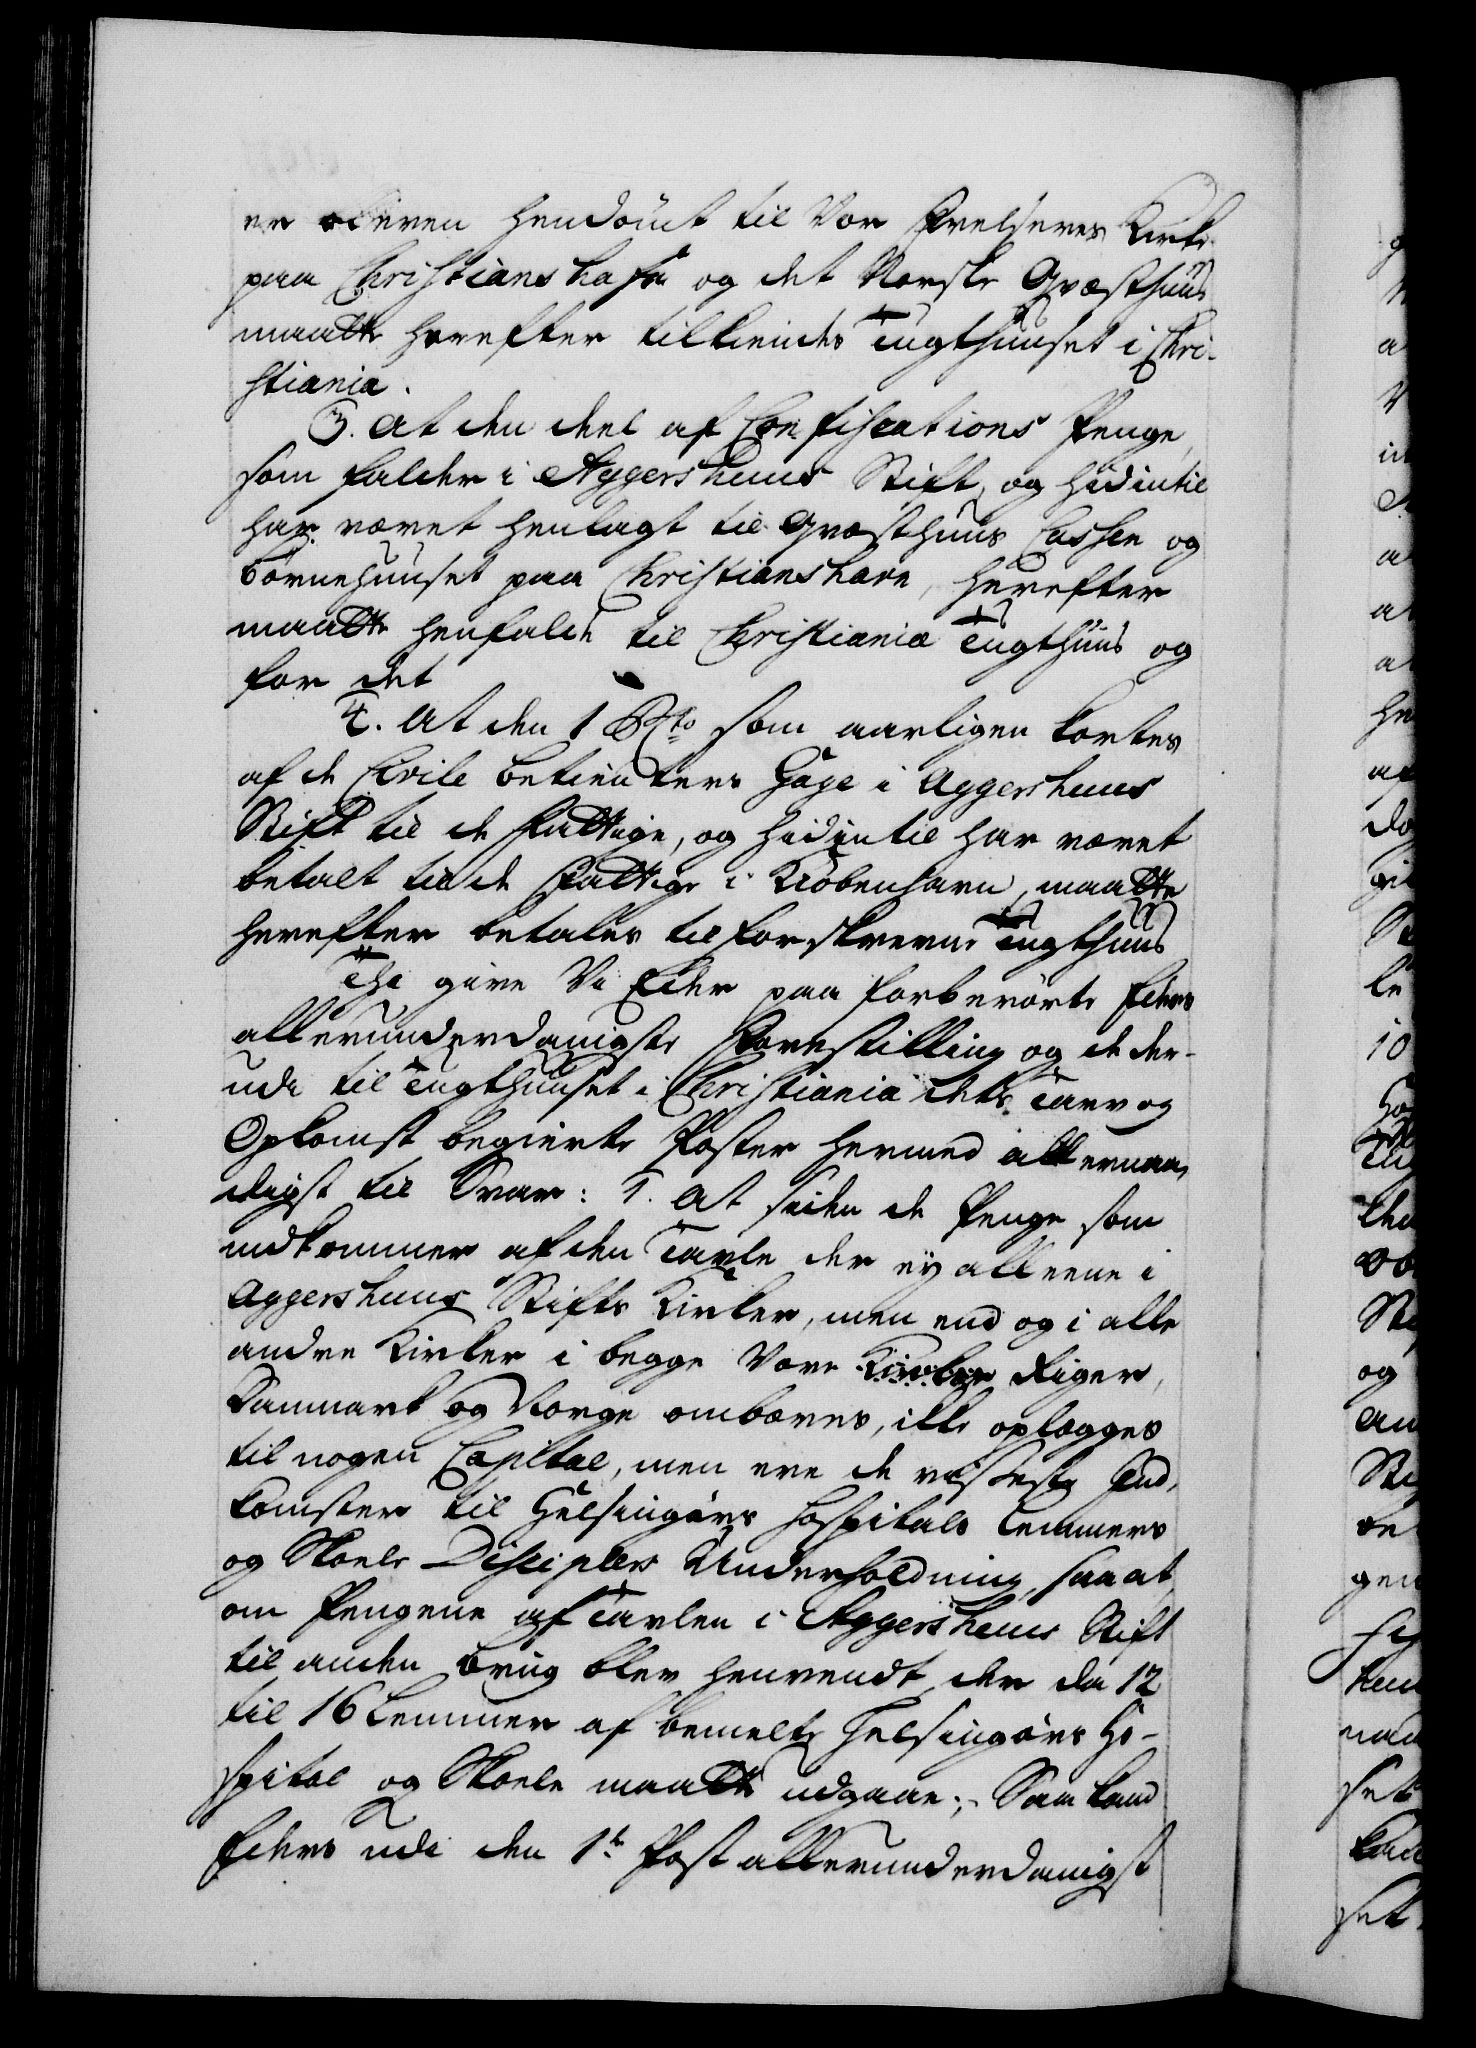 er bleven hendømt til Vor Frelseres Kirke
paa Christianshafn og det Norske Qvæsthuus
maatte herefter tilkiendes Tugthuuset i Chri-
stiania.
3. At den deel af Confiscations Penge,
som falder i Aggershuus Stift, og hidintil
har været henlagt til Qvæsthuus Cassen og
Børnehuuset paa Christianshavn, herefter
maatte henfalde til Christiania Tugthuus og
for det
4. At den 1 Rdr som aarligen kortes
af de Civile Betienters Gage i Aggershuus
Stift til de Fattige, og hidintil har været
betalt til de Fattige i Kiøbenhavn, maatte
herefter betales til forskrevne Tugthuus
Thi give Vi Eder paa forberørte Eders
allerunderdanigste Forestilling og de der-
udi til Tugthuuset i Christiania dets Tarv og
Opkomst begierte Poster hermed allernaa-
digst til Svar: 1. At siden de Penge som
indkommer af den Tavle der ey alleene i
Aggershuus Stifts Kirker, men end og i alle
andre Kirker i begge Vore Kirker Riger,
Danmark og Norge ombæres, ikke oplægges
til nogen Capital, men ere de visseste Ind-
komster til Helsingørs Hospitals Lemmers
og Skoele Disciplers Underholdning, saa at
om Pengene af Tavlen i Aggershuus Stift
til anden brug blev henvendt, der da 12
til 16 Lemmer af bemelte Helsingørs Ho-
spital og Skoele maatte udgaae; Saa kand
Eders udi den 1te Post allerunderdanigst